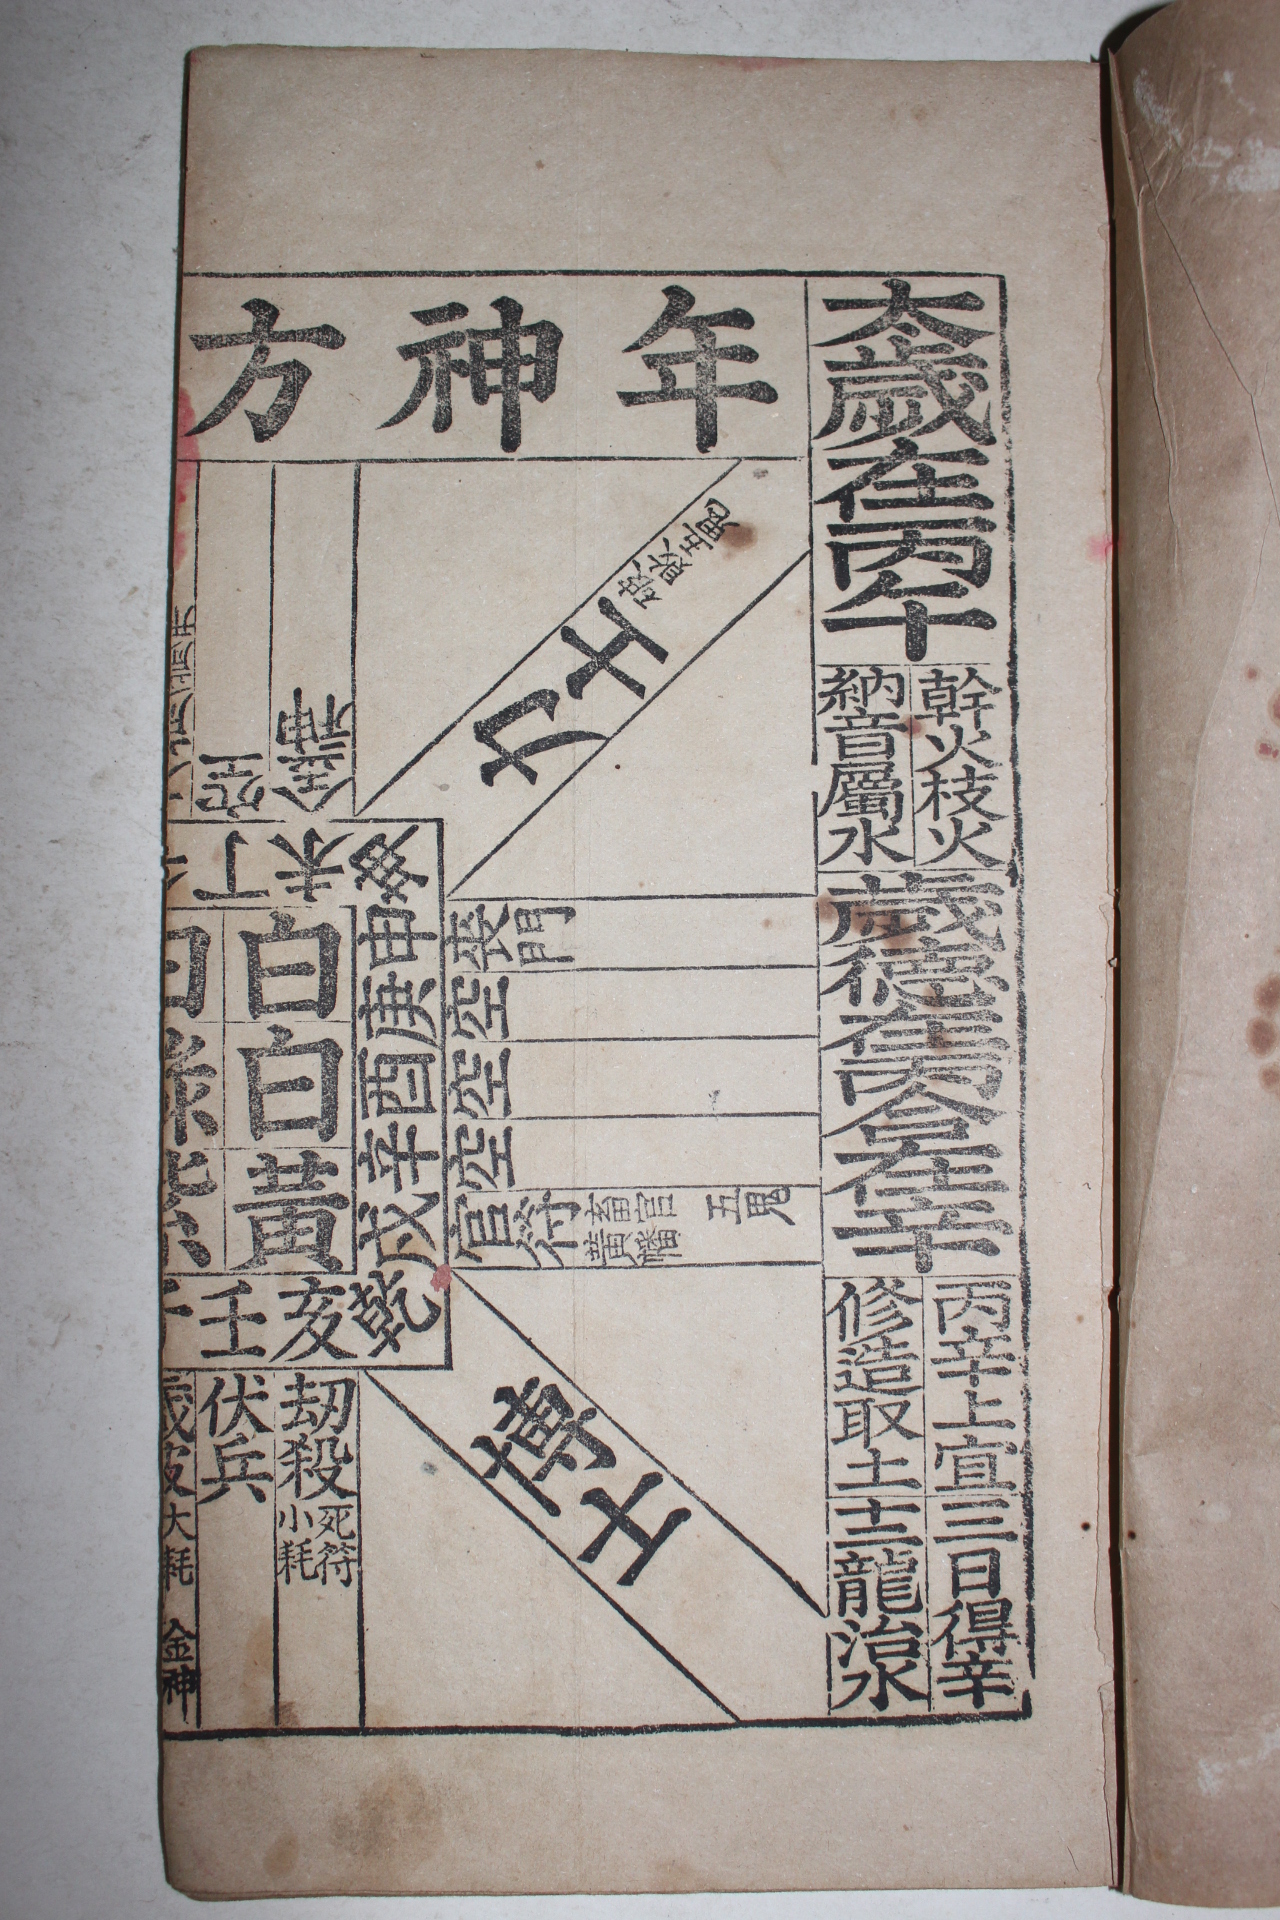 太歲在丙午
幹火枝火
納音屬水
歲德在丙合在辛
丙辛上宜
修造取土
三日得辛
十二龍治水
年神方
力士
五鬼
金神
空
坤未丁
申庚酉辛戌
乾亥壬
喪門
空
空
空
官符
畜官
黃幡
五鬼
白
白
黃
博士
劫殺
死符
小耗
伏兵
歲破
大耗
金神